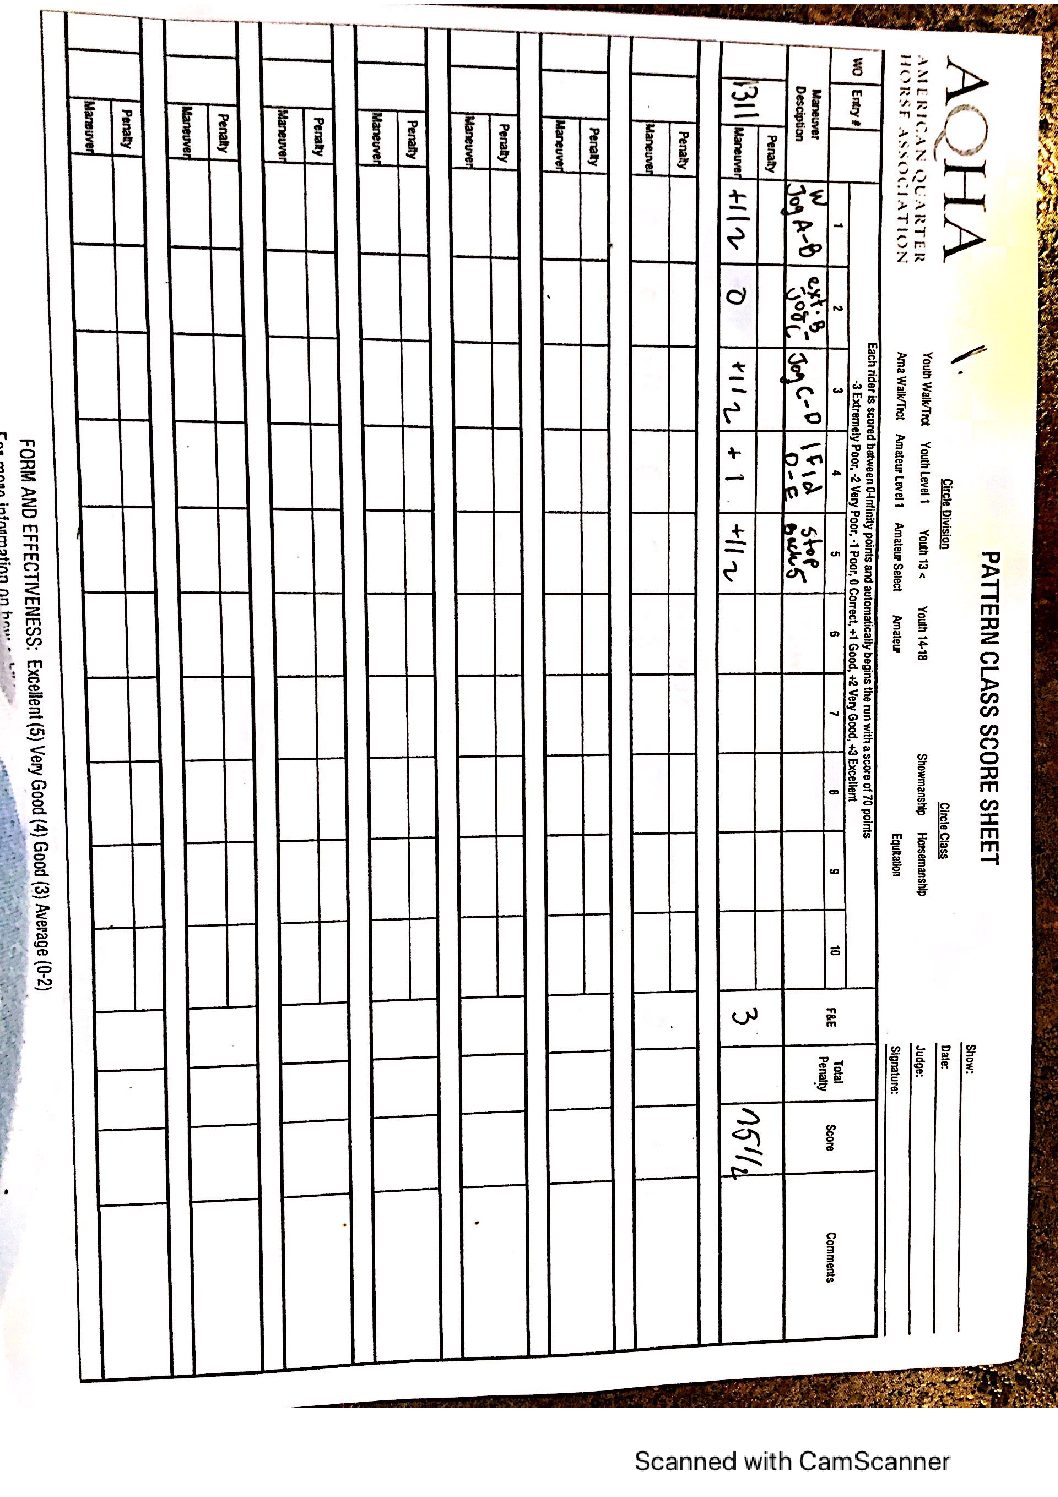 AQHA
AMERICAN QUARTER
HORSE ASSOCIATION
1.
PATTERN CLASS SCORE SHEET
Circle Division
Youth Walk/Trot Youth Level 1 Youth 13 < Youth 14-18
Ama Walk/Trot Amateur Level 1 Amateur Select Amateur
Circle Class
Showmanship Horsemanship
Equitation
Show:
Date:
Judge:
Signature:
Each rider is scored between 0-Infinity points and automatically begins the run with a score of 70 points
-3 Extremely Poor, -2 Very Poor, -1 Poor, 0 Correct, +1 Good, +2 Very Good, +3 Excellent
WO Entry # 1 2 3 4 5 6 7 8 9 10 F&E Total Penalty Score Comments
Maneuver Desciption W Jog A-B ext. B- Jog C Jog C-D D-E stop
Penalty
1311 Maneuver +1/2 0 +1/2 +1 +1/2 3 75 1/2
Penalty
Maneuver
Penalty
Maneuver
Penalty
Maneuver
Penalty
Maneuver
Penalty
Maneuver
Penalty
Maneuver
Penalty
Maneuver
FORM AND EFFECTIVENESS: Excellent (5) Very Good (4) Good (3) Average (0-2)
For more information on how
Scanned with CamScanner